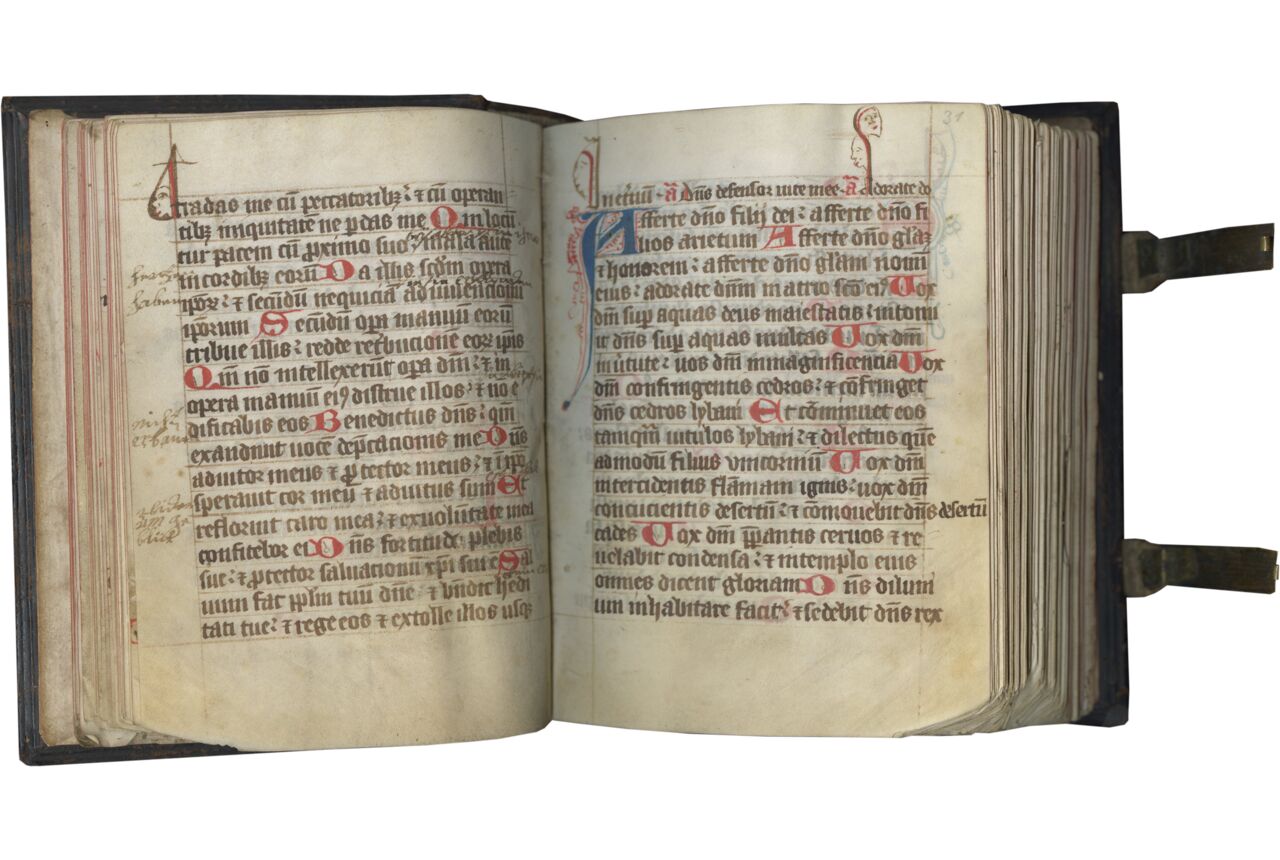 tradas me cū peccatoribꝫ: ⁊ cū operan
tibꝫ iniquitatē ne ꝑdas me Qui locū
tur pacem cū ꝓximo suo: mala autē
in cordibꝫ eorū Da illis scd̄m opera
ipoꝝ: ⁊ secūdū nequiciā adinuencionū
ip̄orum Secūdū oꝑa manuū eorū
tribue illis: redde ret͛bucionē eoꝝ ipīs
Qm̄ nō intellexerūt oꝑa dn̄i: ⁊ in
opera manuū eiꝰ destrue illos: ⁊ nō e
dificabis eos Benedictus dn̄s: qm̄
exaudiuit uocē dep̄cacionis mee Dn̄s
adiutor meus ⁊ ꝓtector meus: ⁊ in ip̄o
sperauit cor meū ⁊ adiutus sum Et
refloruit caro mea: ⁊ ex uolūtate mea
confitebor ei Dn̄s fortitudo plebis
sue: ⁊ ꝓtector saluacionū xp̄i sui ē Sal
uum fac pp̄lm tuū dn̄e: ⁊ bn̄dic hedi
tati tue: ⁊ rege eos ⁊ extolle illos usqꝫ
31
in et͛nū. a Dn̄s defensor uite mee. a Adorate do
Afferte dn̄o filij dei: afferte dn̄o fi
lios arietum Afferte dn̄o gl̄aꝫ
⁊ honorem: afferte dn̄o gl̄am nomī
eius: adorate dn̄m in atrio sc̄o eiꝰ Uox
dn̄i suꝑ aquas deus maiestatis: intonu
it dn̄s suꝑ aquas multas Uox dn̄i
in ũtute: uox dn̄i in magnificencia Uox
dn̄i confringentis cedros: ⁊ cōfringet
dn̄s cedros lybani Et cōminuet eos
tamqm̄ uitulos lybani: ⁊ dilectus que
admodū filius unicorniū Uox dn̄i
intercidentis flāmam ignis: uox dn̄i
concucientis desertū: ⁊ cōmouebit dn̄s desertū
cades Uox dn̄i p̄ꝑantis ceruos ⁊ re
uelabit condensa: ⁊ in templo eius
omnes dicent gloriam Dn̄s diluui
um inhabitare facit: ⁊ sedebit dn̄s rex